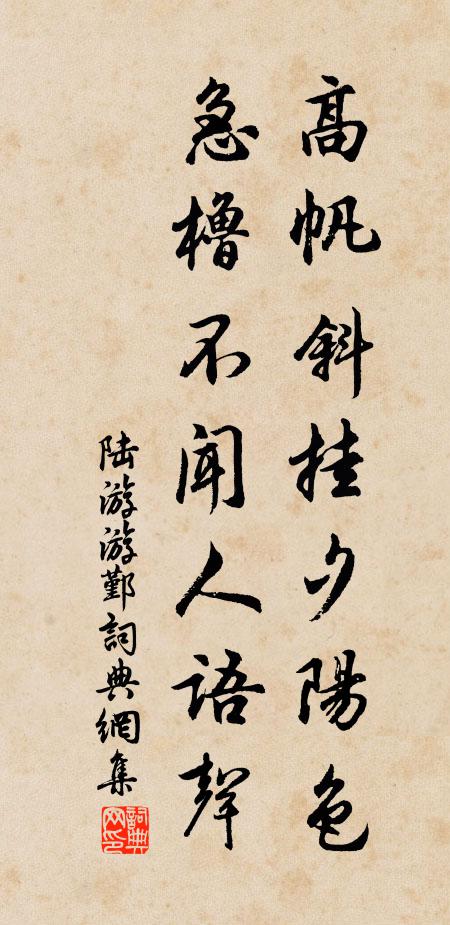 高帆斜挂夕陽色
急櫓不聞人語聲
陆游游鄞詞典網集
詞典网印